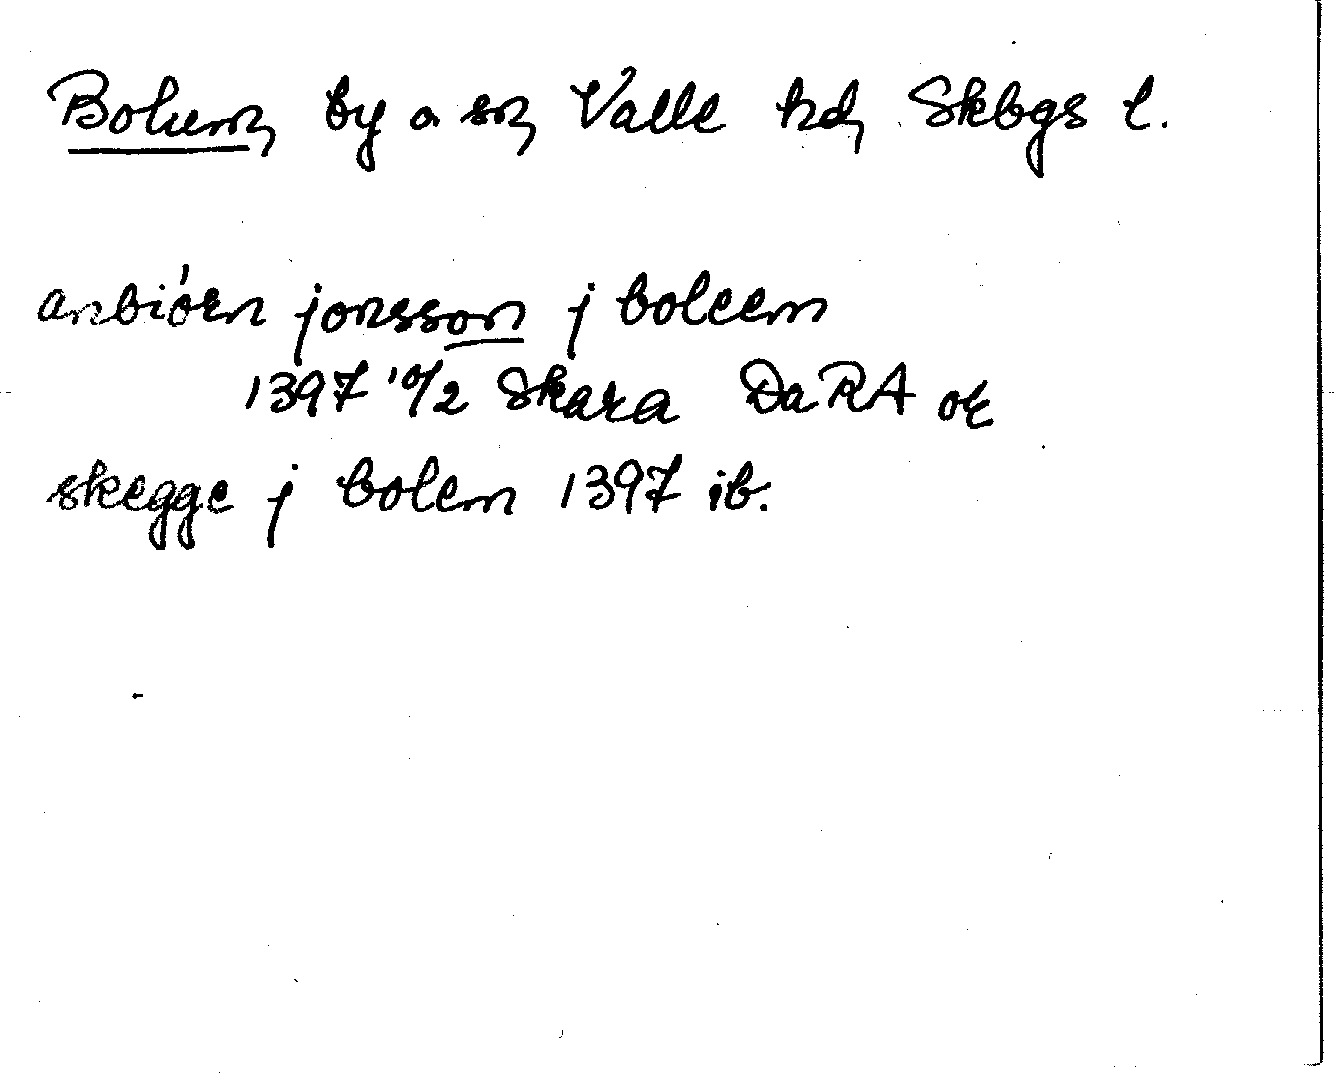 Bolum, by o sn, Valle hd, Skbgs l.
anbiórn jonsson j boleem
1397 10/2 Skara DaRA or
skegge j bolem 1397 ib.